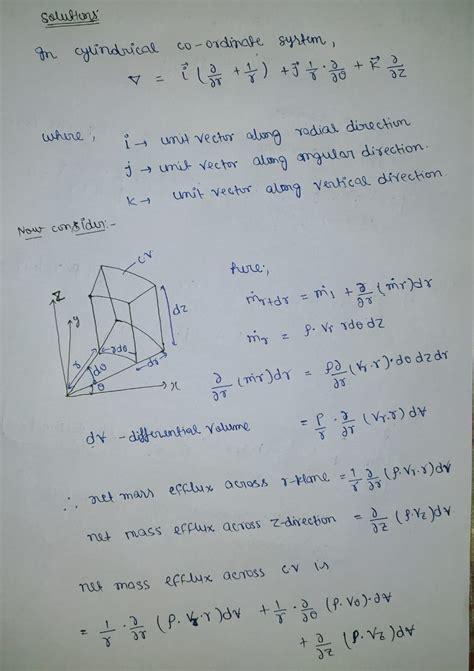 Solutions
In cylindrical co-ordinate system,
∇ = i⃗ (∂/∂r + 1/r) + j⃗ 1/r · ∂/∂θ + k⃗ ∂/∂z
where, i → unit vector along radial direction
j → unit vector along angular direction.
k → unit vector along vertical direction.
Now consider:-
CV
here;,
z
y
dz
ṁr+dr = ṁ1 + ∂/∂r (ṁr)dr
ṁr = ρ. Vr rdθ dz
rdθ
dr
r
dθ
θ
x
∂/∂r (ṁr)dr = ρ∂/∂r (Vr.r)·dθ dz dr
d∀ - differential volume = ρ/r · ∂/∂r (Vr.r) d∀
∴ net mass efflux across r-plane = 1/r ∂/∂r (ρ.Vr.r)d∀
net mass efflux across z-direction = ∂/∂z (ρ.Vz)d∀
net mass efflux across CV is
= 1/r · ∂/∂r (ρ.Vr.r)d∀ + 1/r · ∂/∂θ (ρ.Vθ)·d∀
+ ∂/∂z (ρ.Vz)d∀